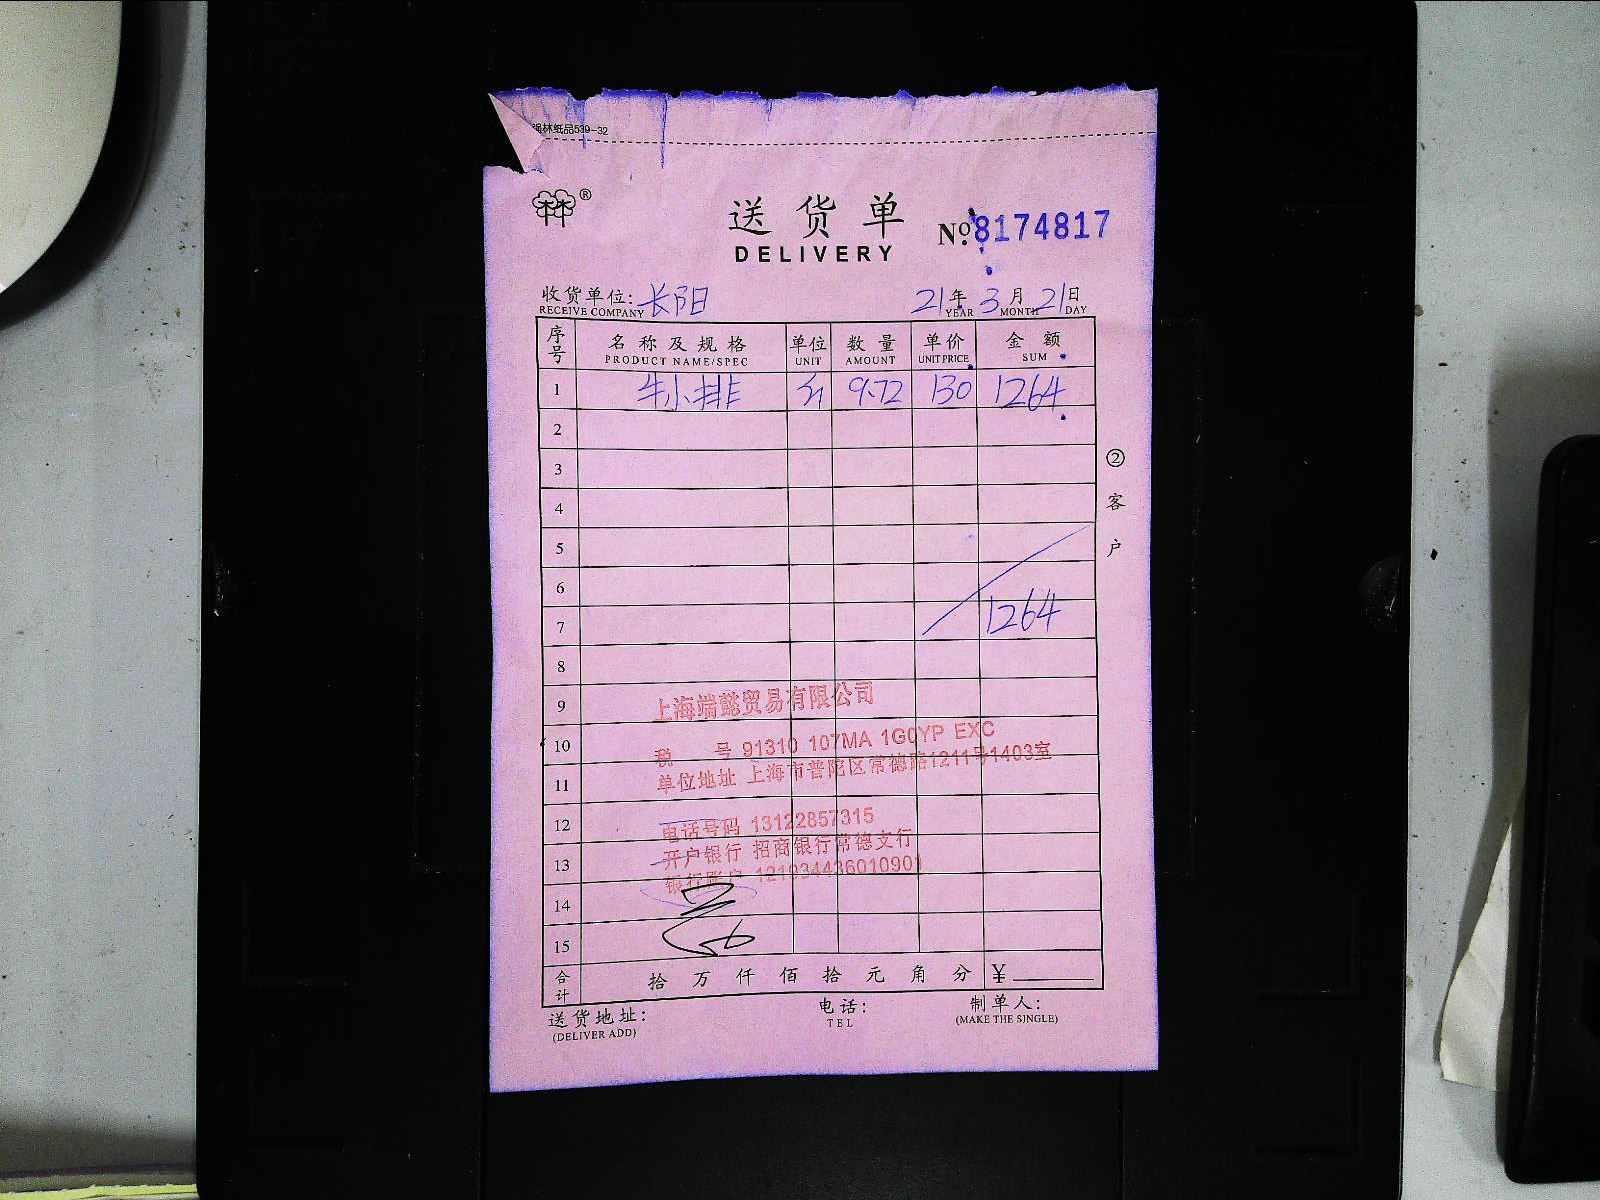 林纸品539-32
®
送货单
DELIVERY
№ 8174817
收货单位: 长阳 21年 3月 21日
RECEIVE COMPANY YEAR MONTH DAY
序号 名称及规格 单位 数量 单价 金额
PRODUCT NAME/SPEC UNIT AMOUNT UNIT PRICE SUM
1 牛小排 斤 9.72 130 1264
2
3
4
5
6
7 1264
8
9
10
11
12
13
14
15
②客户
上海端懿贸易有限公司
税 号 91310 107MA 1G0YP EXC
单位地址 上海市普陀区常德路1211号1403室
电话号码 13122857315
开户银行 招商银行常德支行
银行账户 121934436010901
合计 拾 万 仟 佰 拾 元 角 分 ¥
送货地址: 电话: 制单人:
(DELIVER ADD) TEL (MAKE THE SINGLE)